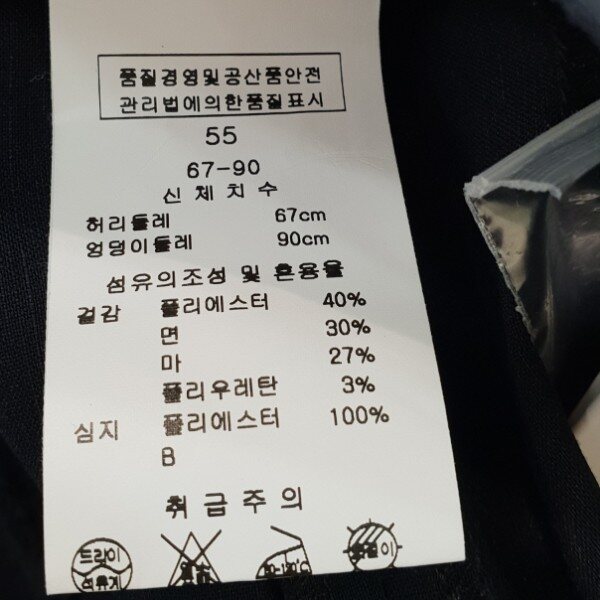 품질경영및공산품안전
관리법에의한품질표시
55
67-90
신체치수
허리둘레 67cm
엉덩이둘레 90cm
섬유의조성 및 혼용율
겉감 폴리에스터 40%
면 30%
마 27%
폴리우레탄 3%
심지 폴리에스터 100%
B
취급주의
드라이
석유계